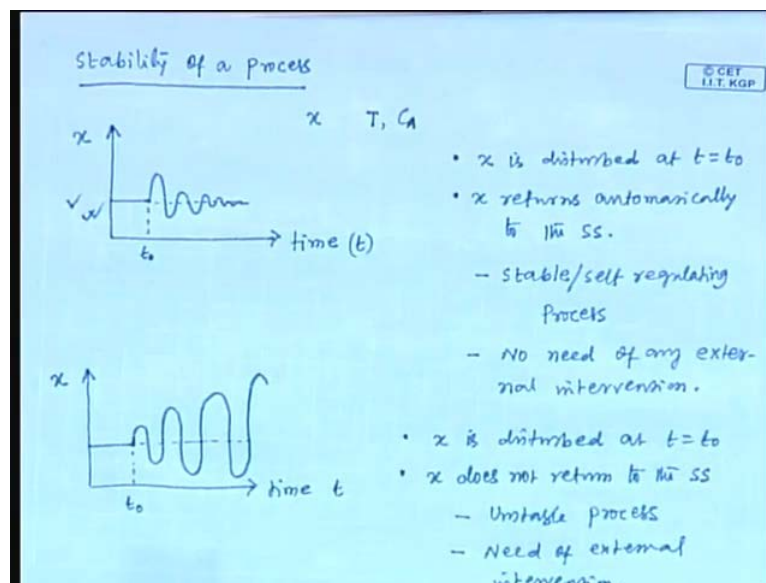 Stability of a process
© CET
I.I.T. KGP
x T, CA
x
t0
time (t)
• x is disturbed at t=t0
• x returns automatically
to the SS.
- Stable/self regulating
Process
- No need of any exter-
nal intervension.
x
t0
time t
• x is disturbed at t=t0
• x does not return to the SS
- Unstable process
- Need of external
intervension